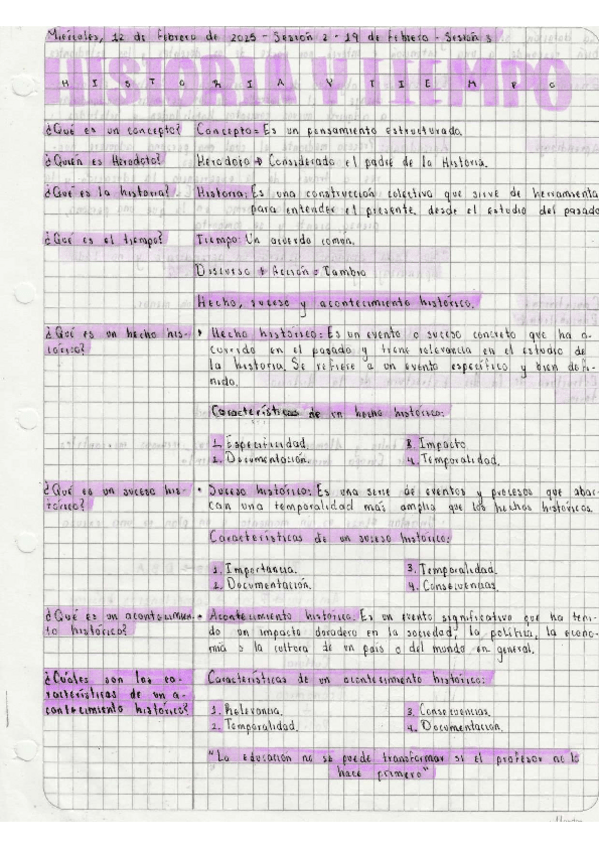 Miércoles, 12 de Febrero de 2025 - Sesión 2 - 19 de Febrero - Sesión 3
HISTORIA Y TIEMPO
¿Qué es un concepto? Concepto: Es un pensamiento estructurado.
¿Quién es Herodoto? Herodoto → Considerado el padre de la Historia.
¿Qué es la historia? Historia: Es una construcción colectiva que sirve de herramienta
para entender el presente, desde el estudio del pasado
¿Qué es el tiempo? Tiempo: Un acuerdo común.
Discurso + Acción = Cambio
Hecho, suceso y acontecimiento histórico.
¿Qué es un hecho his- • Hecho histórico: Es un evento o suceso concreto que ha o-
tórico? currido en el pasado y tiene relevancia en el estudio de
la historia. Se refiere a un evento específico y bien defi-
nido.
Características de un hecho histórico:
1. Especificidad 3. Impacto
2. Documentación. 4. Temporalidad.
¿Qué es un suceso his- • Suceso histórico: Es una serie de eventos y procesos que abar-
tórico? can una temporalidad más amplia que los hechos históricos.
Características de un suceso histórico:
1. Importancia. 3. Temporalidad.
2. Documentación. 4. Consecuencias
¿Qué es un acontecimien- • Acontecimiento histórico: Es un evento significativo que ha teni-
to histórico? do un impacto duradero en la sociedad, la política, la econo-
mía o la cultura de un país o del mundo en general.
¿Cuáles son las ca- Características de un acontecimiento histórico:
racterísticas de un a-
contecimiento histórico? 1. Relevancia. 3. Consecuencias.
2. Temporalidad. 4. Documentación.
"La educación no se puede transformar si el profesor no lo
hace primero"